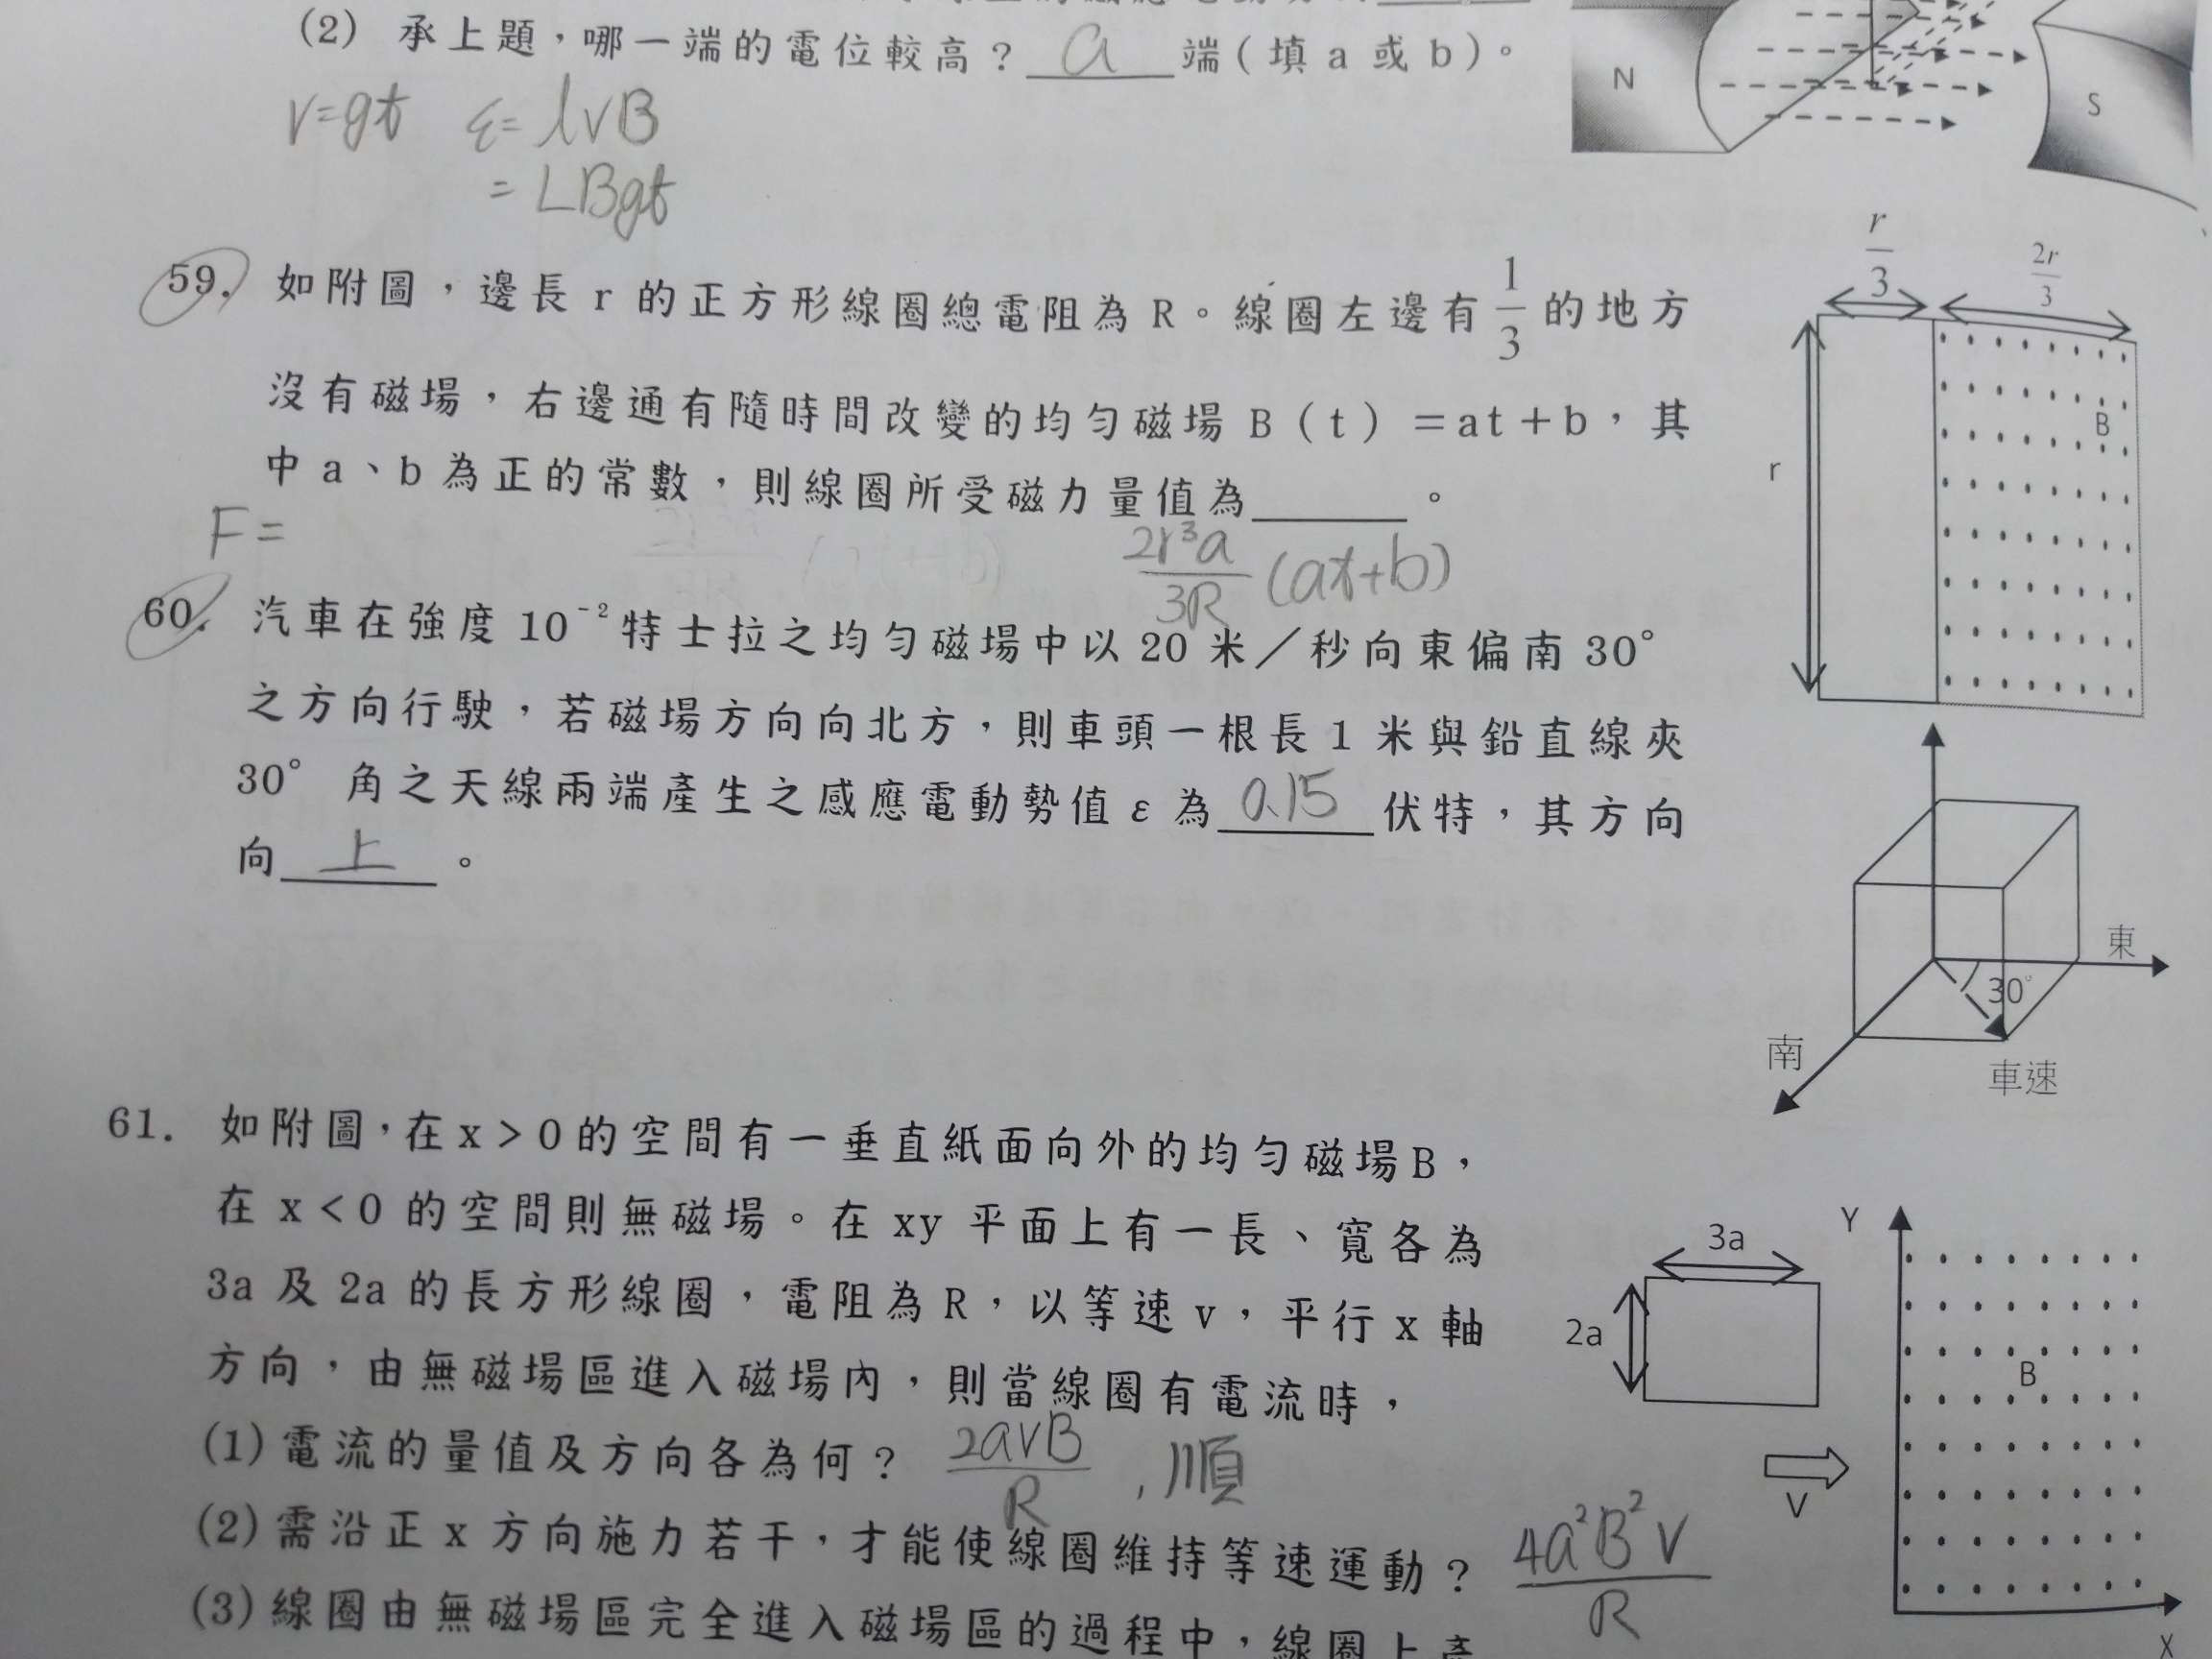 (2) 承上題，哪一端的電位較高？ a 端(填 a 或 b)。
N
S
v=gt ε= lvB
= LBgt
r/3
2r/3
59. 如附圖，邊長 r 的正方形線圈總電阻為 R。線圈左邊有 1/3 的地方
沒有磁場，右邊通有隨時間改變的均勻磁場 B(t)＝at＋b，其
中 a、b 為正的常數，則線圈所受磁力量值為______。
F=
2r³a/3R (at+b)
B
r
60. 汽車在強度 10⁻² 特士拉之均勻磁場中以 20 米／秒向東偏南 30°
之方向行駛，若磁場方向向北方，則車頭一根長 1 米與鉛直線夾
30° 角之天線兩端產生之感應電動勢值 ε 為 0.15 伏特，其方向
向 上 。
東
30°
南
車速
61. 如附圖，在 x＞0 的空間有一垂直紙面向外的均勻磁場B，
在 x＜0 的空間則無磁場。在 xy 平面上有一長、寬各為
3a 及 2a 的長方形線圈，電阻為 R，以等速 v，平行 x 軸
方向，由無磁場區進入磁場內，則當線圈有電流時，
(1)電流的量值及方向各為何？ 2avB/R , 順
(2)需沿正 x 方向施力若干，才能使線圈維持等速運動？ 4a²B²v/R
(3)線圈由無磁場區完全進入磁場區的過程中，線圈上產
3a
2a
Y
B
V
X